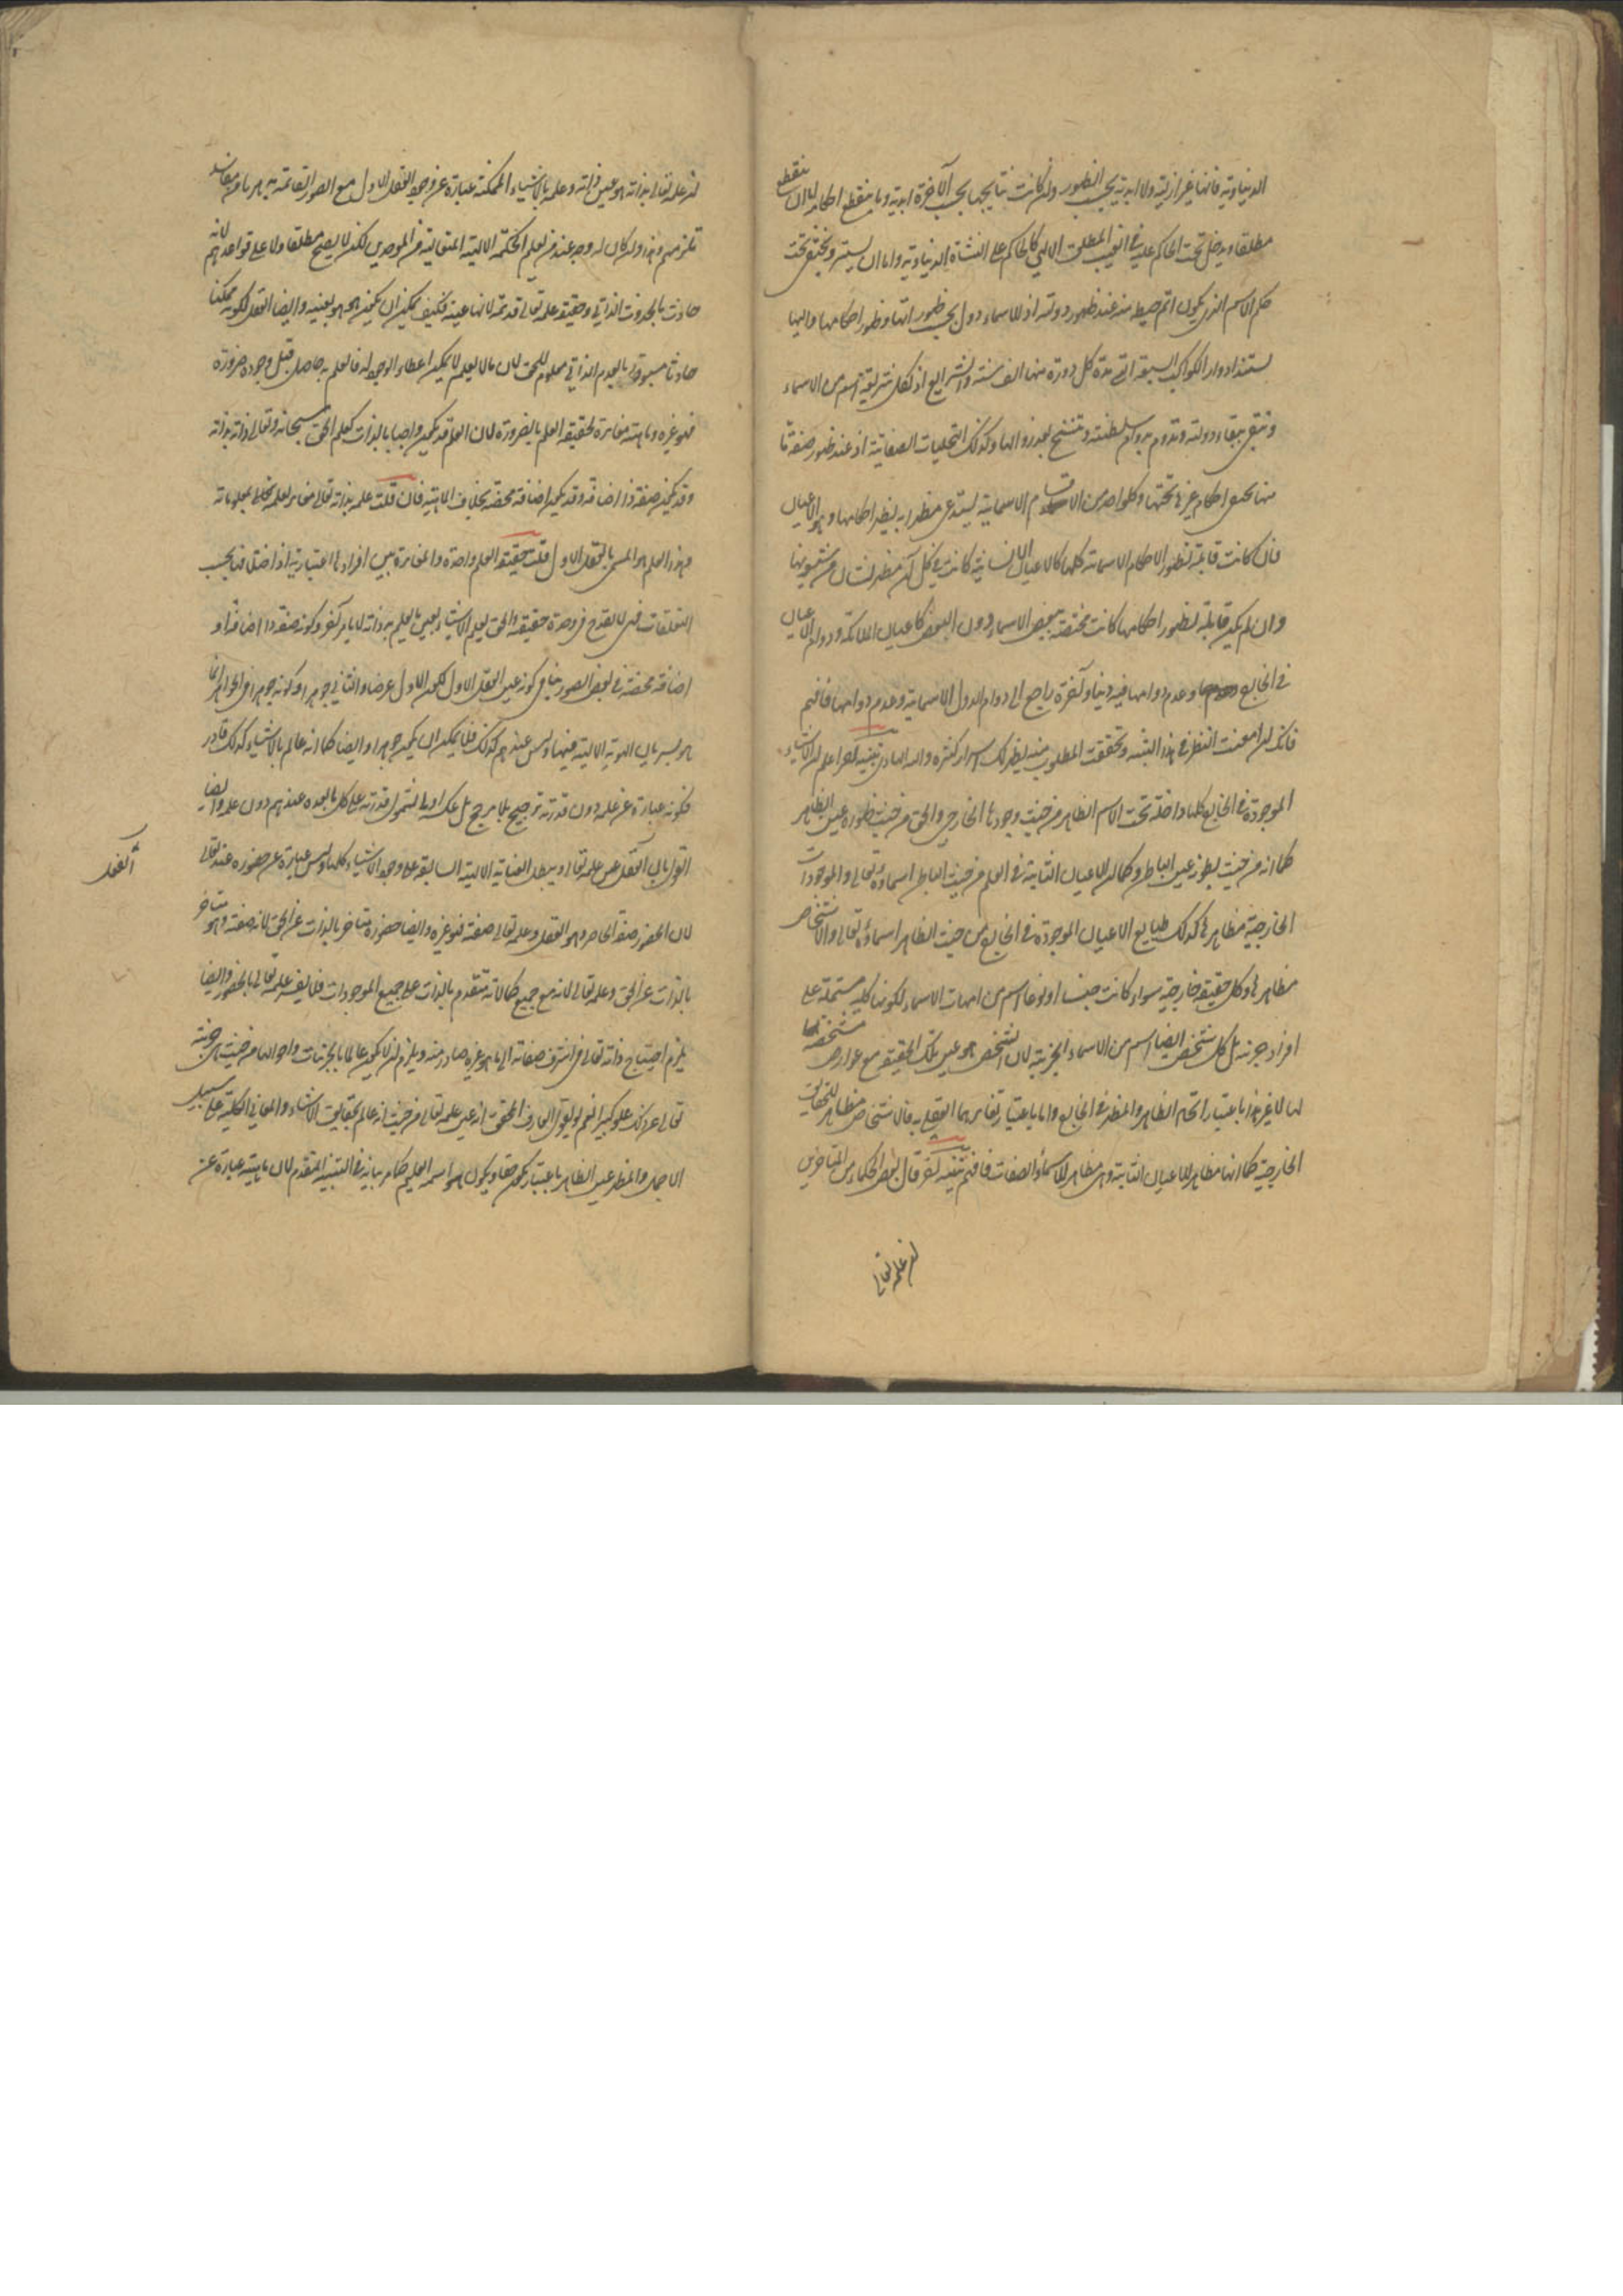 الدنياوية فانها غير ازلية ولا ابدية بحسب الظهور وان كانت نتايجها بحسب الآخرة ابدية وما ينقطع احكامه اما ان ينقطع
مطلقا ويدخل تحت الحاكم عليه في الغيب المطلق الالهي كالحاكم على النشأة الدنياوية واما ان يستتر ويختفي تحت
حكم الاسم الذي يكون اتم حيطة منه عند ظهور دولته اذ للاسماء دول بحسب ظهوراتها وظهور احكامها واليها
يستند ادوار الكواكب السبعة التي مدة كل دورة منها الف سنة والشرايع اذ لكل شريعة اسم من الاسماء
وتبقى ببقاء دولته وتدوم بدوام سلطنته وتنسخ بعد زوالها وكذلك التجليات الصفاتية اذ عند ظهور صفة ما
منها يختفي احكام غيرها تحتها وكل واحد من الاقسام الاسمائية يستدعي مظهرا به يظهر احكامها وهو الاعيان
فان كانت قابلة لظهور الاحكام الاسمائية كلها كالاعيان الانسانية كانت في كل آن مظهرا لشأن من شئونها
وان لم يكن قابلة لظهور احكامها كانت مختصة ببعض الاسماء دون البعض كاعيان الملائكة ودوام الاعيان
في الخارج وعدم دوامها فيه دنيا وآخرة راجع الى دوام الدول الاسمائية وعدم دوامها فافهم
فانك ان امعنت النظر في هذا التنبيه وتحققت المطلوب منه يظهر لك اسرار كثيرة والله الهادي تنبيه آخر اعلم ان الاشياء
الموجودة في الخارج كلها داخلة تحت الاسم الظاهر من حيث وجودها الخارجي والحق من حيث ظهوره عين الظاهر
كما انه من حيث بطونه عين الباطن وكما ان الاعيان الثابتة في العلم من حيث الباطن اسماؤه تعالى والموجودات
الخارجية مظاهرها كذلك طبايع الاعيان الموجودة في الخارج من حيث الظاهر اسماؤه تعالى والاشخاص
مظاهرها وكل حقيقة خارجية سواء كانت جنسا او نوعا اسم من امهات الاسماء لكونها كلية مشتملة على
افراد جزئية بل كل شخص ايضا اسم من الاسماء الجزئية لان الشخص هو عين تلك الحقيقة مع عوارض مشخصة
لها لا غير هذا باعتبار اتحاد الظاهر والمظهر في الخارج واما باعتبار تغايرهما العقلي فالاشخاص مظاهر للحقايق
الخارجية كما انها مظاهر للاعيان الثابتة وهي مظاهر للاسماء والصفات فافهم تنبيه آخر قال بعض الحكماء من المتأخرين
ان علمه تعالى
ان علمه تعالى بذاته هو عين ذاته وعلمه بالاشياء الممكنة عبارة عن وجود العقل الاول مع الصور القائمة به هربا من مفاسد
تلزمهم وهذا وان كان له وجه عند من يعلم الحكمة الالهية المتعالية من الموحدين لكن لا يصح مطلقا ولا على قواعدهم لانه
حادث بالحدوث الذاتي وحقيقة علمه تعالى قديمة لانها عينه فكيف يمكن ان يكون هو هو بعينه وايضا العقل لكونه ممكنا
حادثا مسبوقا بالعدم الذاتي معلوم للحق لان ما لا يعلم لا يمكن اعطاء الوجود له فالعلم به حاصل قبل وجوده ضرورة
فهو غيره وماهيته مغايرة لحقيقة العلم بالضرورة لان العلم قد يكون واجبا بالذات كعلم الحق سبحانه وتعالى ذاته بذاته
وقد يكون صفة ذا اضافة وقد يكون اضافة محضة بخلاف الماهية فان قلت علمه بذاته تعالى مغاير لعلمه بمعلوماته
وهذا العلم هو المسمى بالعقل الاول قلت حقيقة العلم واحدة والمغايرة بين افرادها اعتبارية اذ اختلافها بحسب
التعلقات فهي لا تقدح في وحدة حقيقة والحق يعلم الاشياء بعين ما يعلم به ذاته لا بامر آخر وكونه صفة ذا اضافة او
اضافة محضة في بعض الصور ينافي كونه عين العقل الاول لكون الاول عرضا والثاني جوهرا وكونه جوهرا في الجواهر انما
هو بسريان الهوية الالهية فيها وليس عندهم كذلك فلا يمكن ان يكون جوهرا وايضا كما انه عالم بالاشياء كذلك قادر
فكونه عبارة عن علمه دون قدرته ترجيح بلا مرجح بل عكسه اولى لشمول قدرته على كل ما بعده عندهم دون علمه وايضا
القول بان العقل عين علمه تعالى يبطل العناية الالهية السابقة على وجود الاشياء كلها وليس عبارة عن حضوره عنده تعالى
لان الحضور صفة الحاضر وهو العقل وعلمه تعالى صفته فهو غيره وايضا حضوره متأخر بالذات عن الحق لانه صفته وهو متأخر
بالذات عن الحق وعلمه تعالى لانه مع جميع كمالاته متقدم بالذات على جميع الموجودات فلا يفسر علمه تعالى بالحضور وايضا
يلزم احتياج ذاته تعالى في اشرف صفاته الى ما هو غيره صادر منه ويلزم ان لا يكون عالما بالجزئيات واحوالها من حيث هي جزئية
تعالى عن ذلك علوا كبيرا نعم لو يقول العارف المحقق انه عين علمه تعالى من حيث انه عالم بحقايق الاشياء والمعاني الكلية على سبيل
الاجمال والمظهر عين الظاهر باعتبار يكون حقا ويكون هو اسمه العليم كما مر بيانه في التنبيه المتقدم لان ماهيته عبارة عن